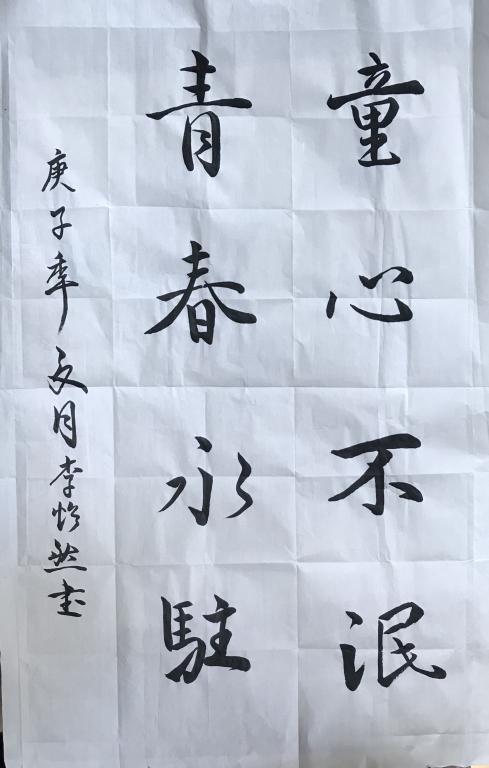 童心不泯
青春永駐
庚子年夏月李怡然书